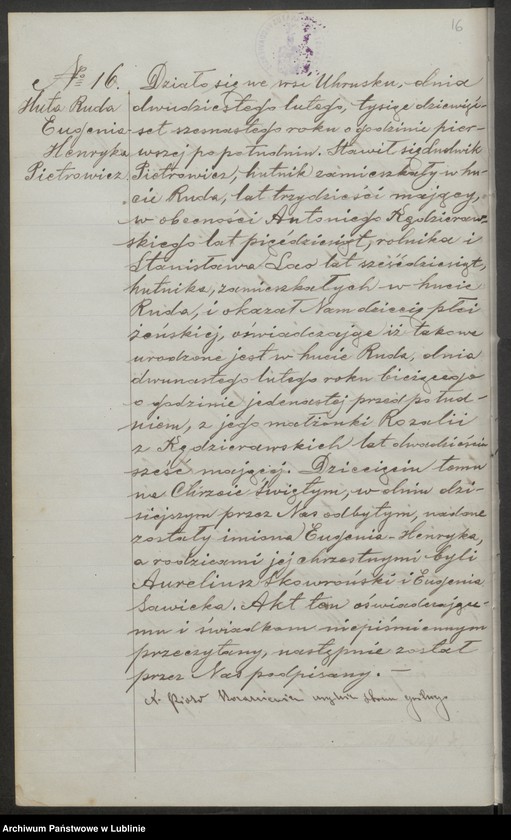 16
№ 16.
Huta Ruda
Eugenia
Henryka
Pietrowicz.
Działo się we wsi Uhrusku, dnia
dwudziestego lutego, tysiąc dziewięć-
set szesnastego roku o godzinie pier-
wszej po południu. Stawił się Ludwik
Pietrowicz, hutnik zamieszkały w hu-
cie Ruda, lat trzydzieści mający,
w obecności Antoniego Kędzieraw-
skiego lat pięćdziesiąt, rolnika i
Stanisława Lao lat sześćdziesiąt,
hutnika, zamieszkałych w hucie
Ruda, i okazał Nam dziecię płci
żeńskiej, oświadczając iż takowe
urodzone jest w hucie Ruda, dnia
dwunastego lutego roku bieżącego
o godzinie jedenastej przed połud-
niem, z jego małżonki Rozalii
z Kędzierawskich lat dwadzieścia
sześć mającej. Dziecięciu temu
na Chrzcie Świętym, w dniu dzi-
siejszym przez Nas odbytym, nadane
zostały imiona Eugenia-Henryka,
a rodzicami jej chrzestnymi byli
Aureliusz Skowroński i Eugenia
Sawicka. Akt ten oświadczające-
mu i świadkom niepiśmiennym
przeczytany, następnie został
przez Nas podpisany. —
X. Piotr
Archiwum Państwowe w Lublinie